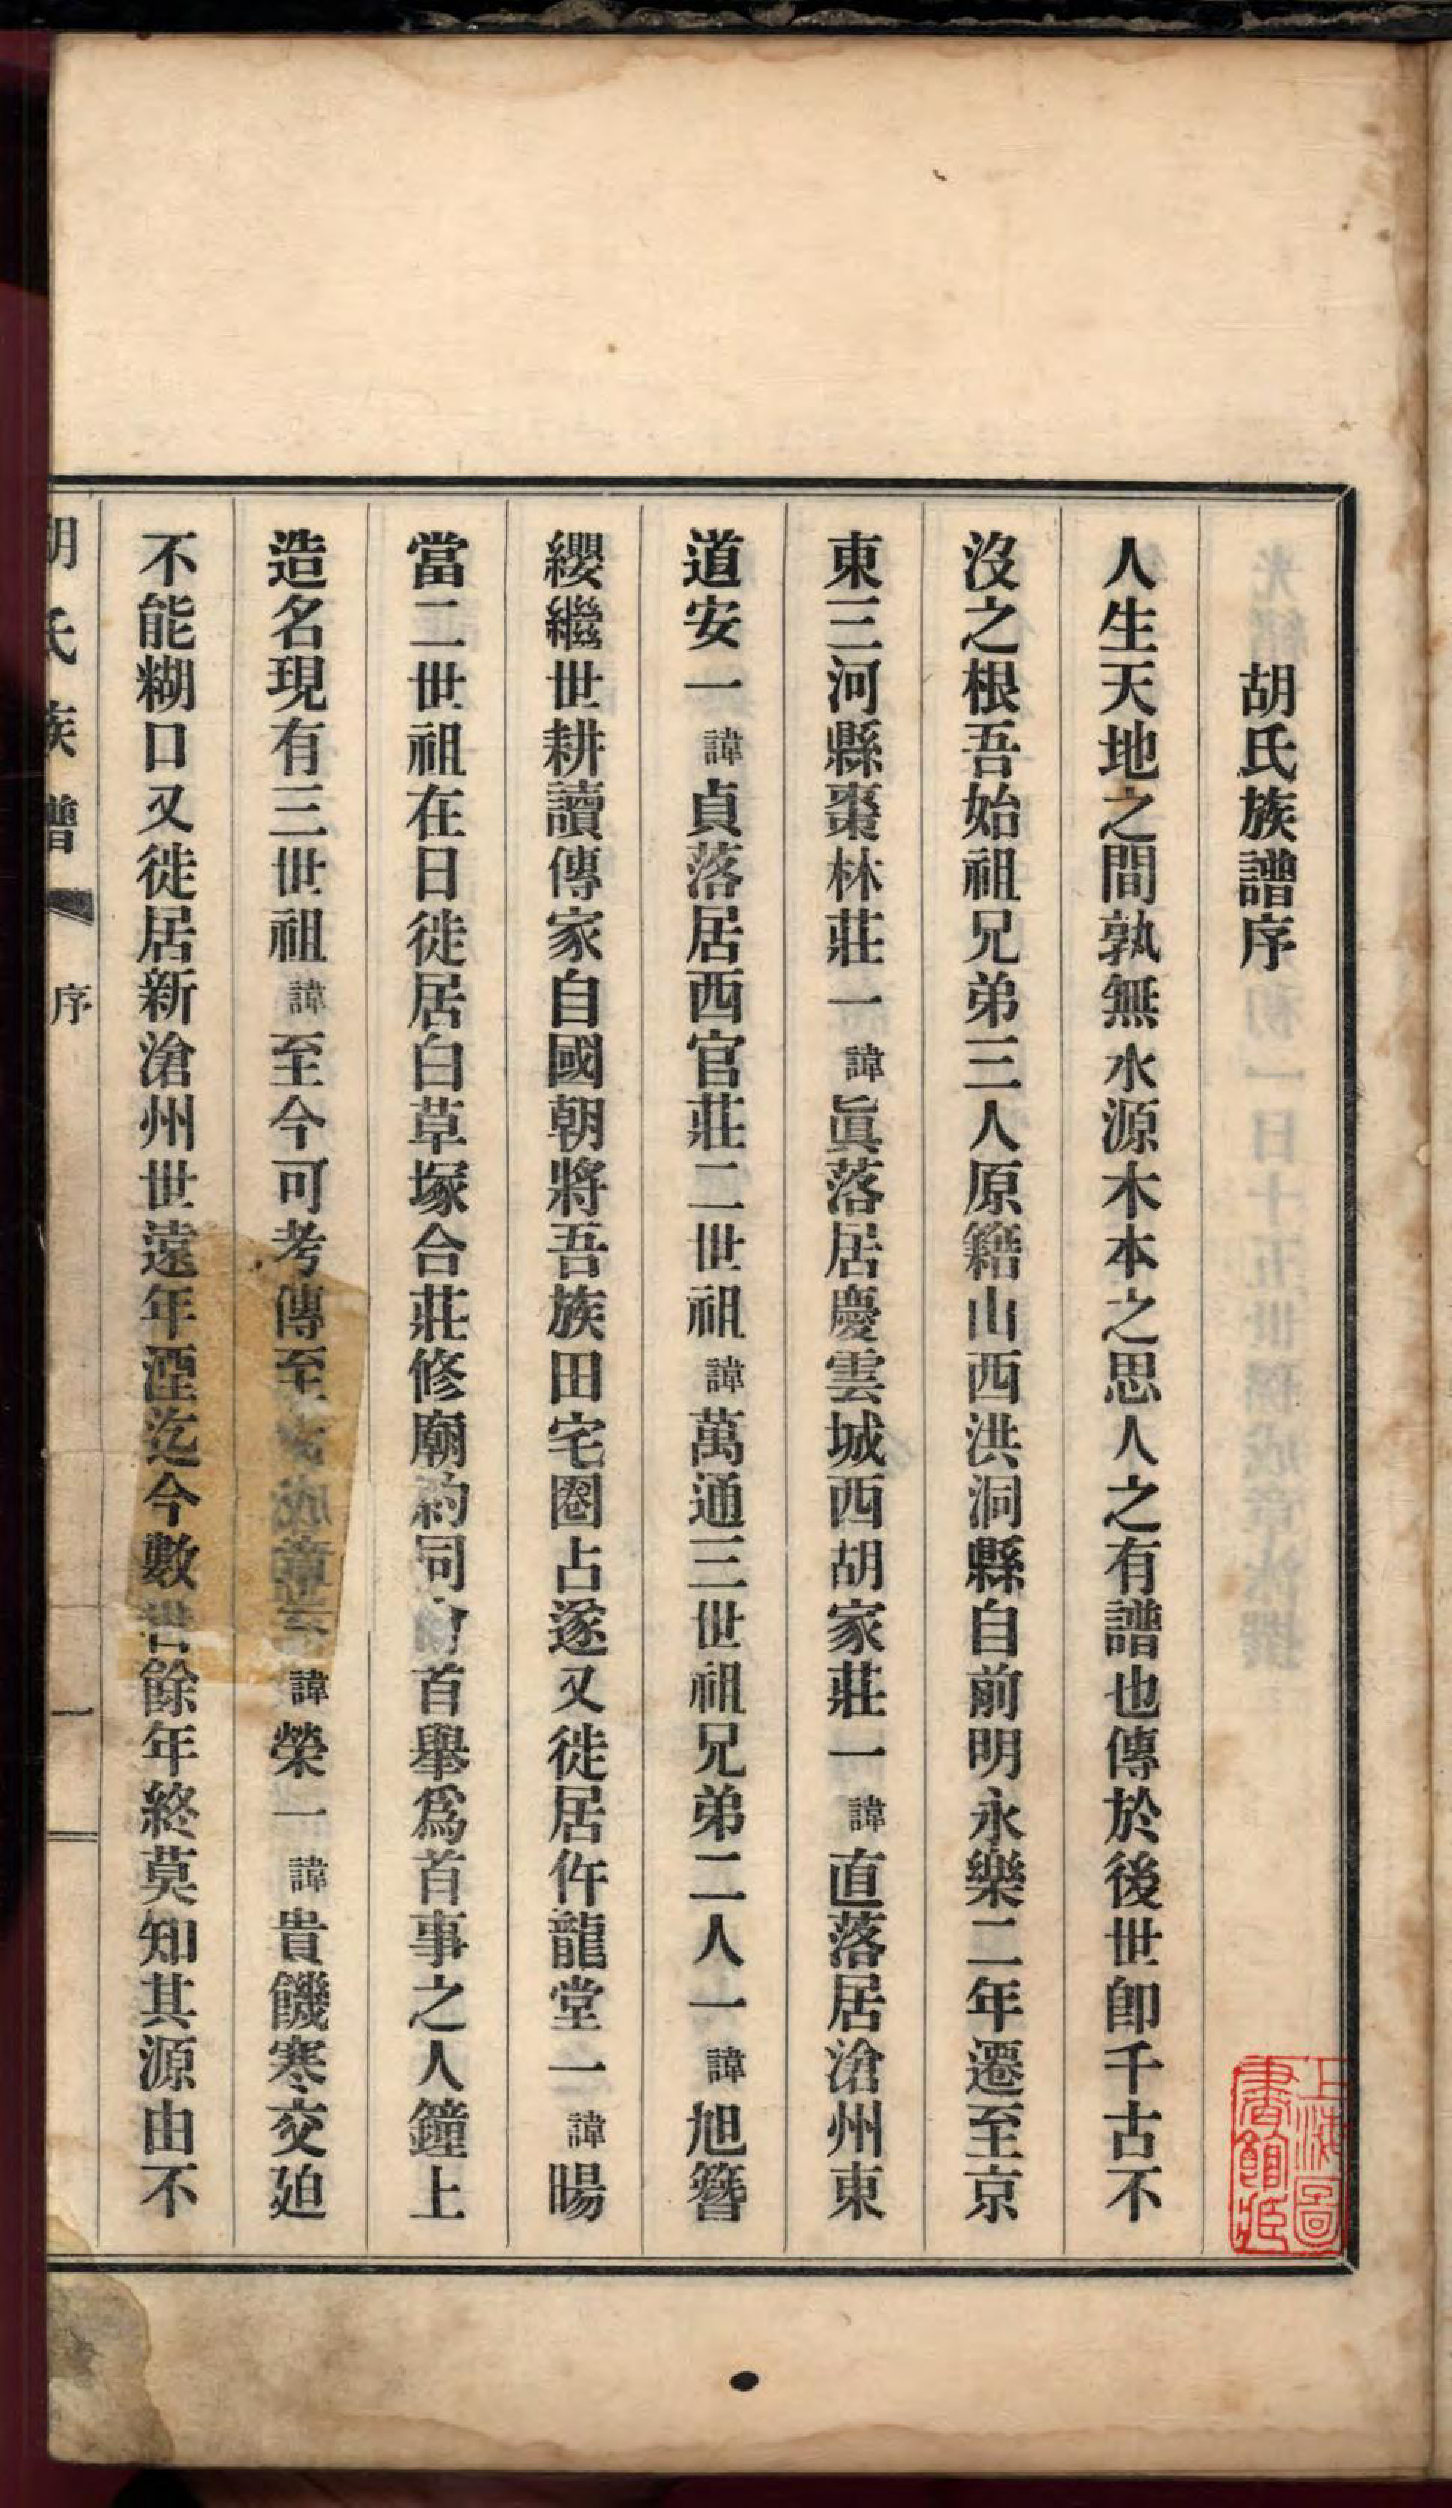 胡氏族譜序
人生天地之間孰無水源木本之思人之有譜也傳於後世卽千古不
沒之根吾始祖兄弟三人原籍山西洪洞縣自前明永樂二年遷至京
東三河縣棗林莊一諱眞落居慶雲城西胡家莊一諱直落居滄州東
道安一諱貞落居西官莊二世祖諱萬通三世祖兄弟二人一諱旭簪
纓繼世耕讀傳家自國朝將吾族田宅圈占遂又徙居仵龍堂一諱暘
當二世祖在日徙居白草塚合莊修廟約同會首舉爲首事之人鐘上
造名現有三世祖諱至今可考傳至諱榮一諱貴饑寒交廹
不能糊口又徙居新滄州世遠年湮迄今數百餘年終莫知其源由不
胡氏族譜 序 一
上海圖書館藏